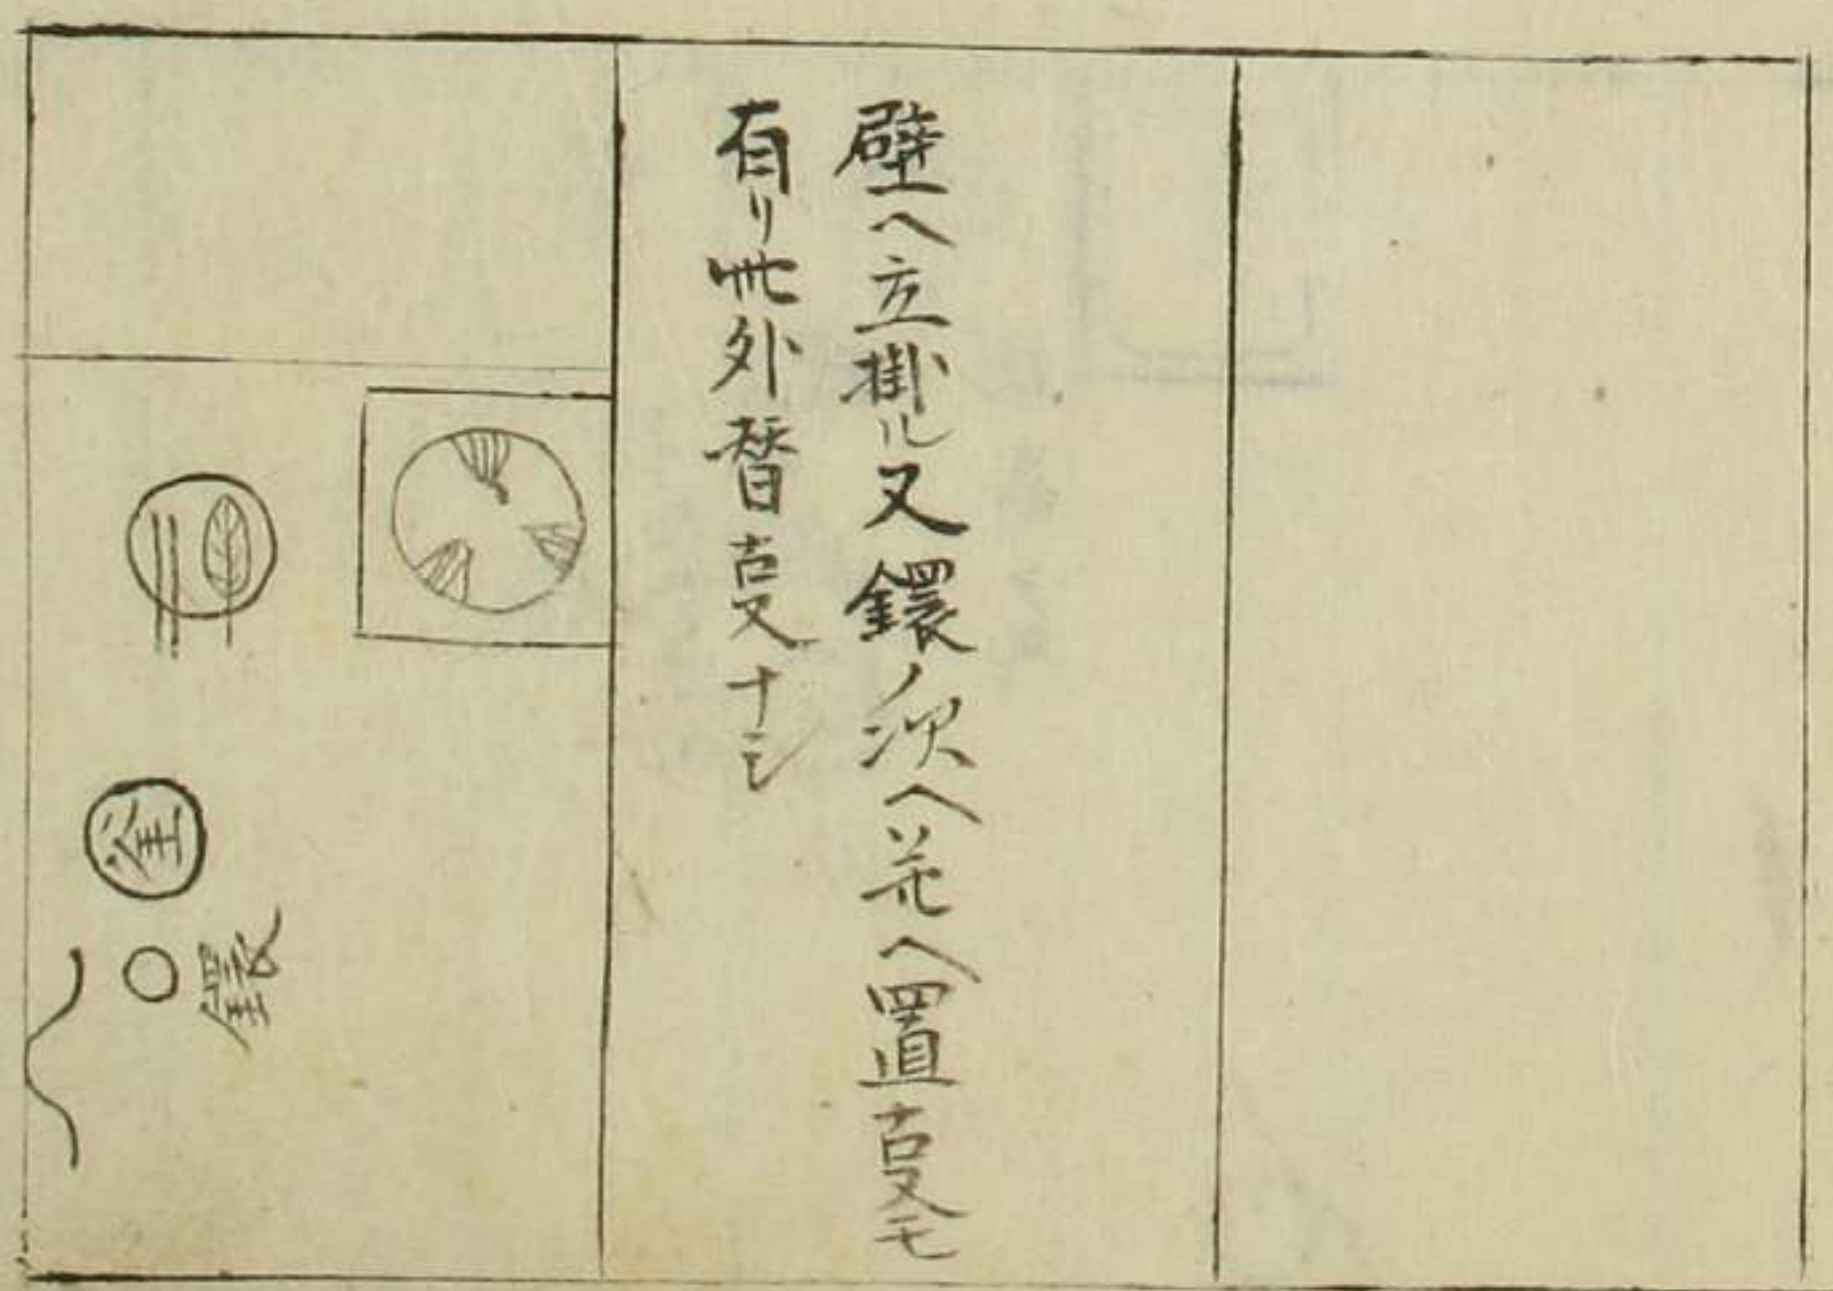 壁ヘ立掛ル又鐶ノ次ヘ花ヘ置叓モ
有リ此外替叓ナシ
釜
鐶